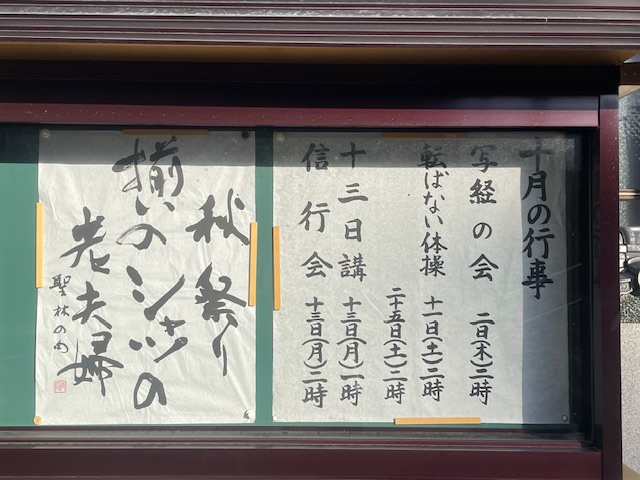 十月の行事
写経の会 二日(木)二時
転ばない体操 十一日(土)二時
二十五日(土)二時
十三日講 十三日(月)一時
信行会 十三日(月)二時
秋祭り
揃いのシャツの
老夫婦
聖林の句